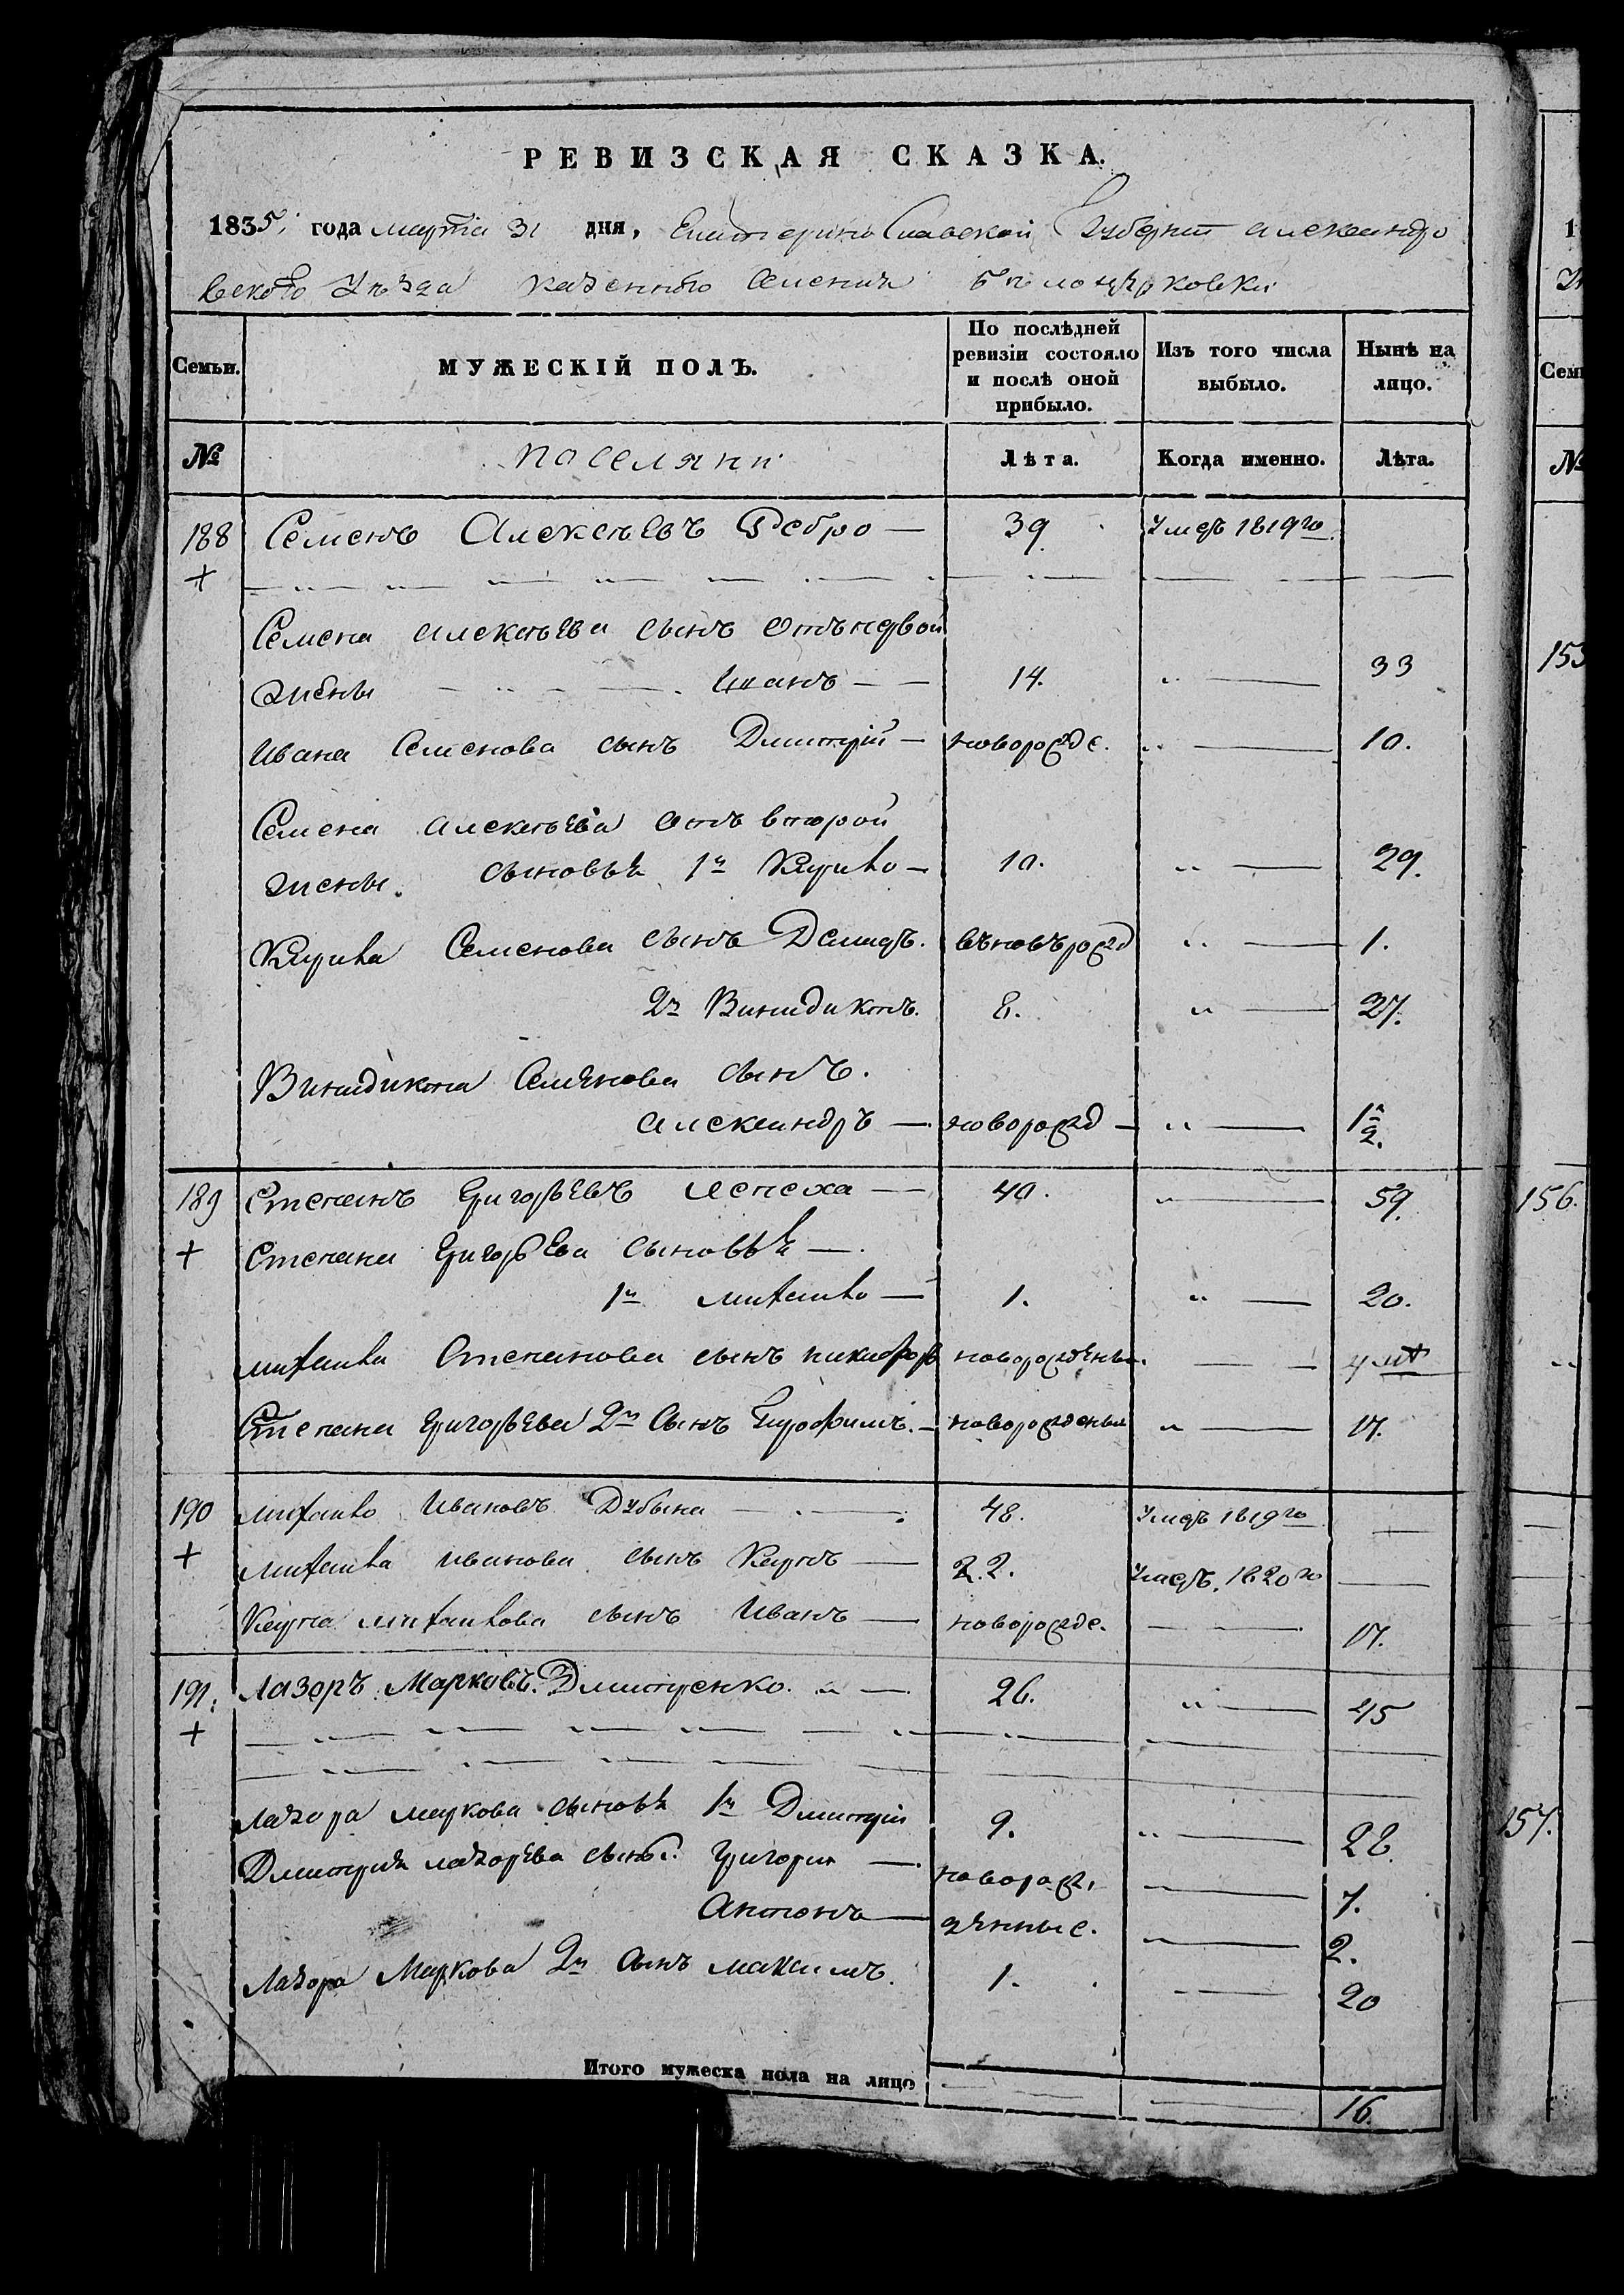 РЕВИЗСКАЯ СКАЗКА.
1835, года марта 31 дня, Екатеринославской Губерніи Александро
вского Уѣзда казенного селения Бѣлоцерковки
Семьи. МУЖЕСКІЙ ПОЛЪ. По послѣдней ревизіи состояло и послѣ оной прибыло. Изъ того числа выбыло. Нынѣ на лицо.
№ поселяни Лѣта. Когда именно. Лѣта.
188 Семенъ Алексѣевъ Ребро — 39. Умеръ 1819го
+
Семена Алексѣева сынъ отъ первой
жены Иванъ — 14. " — 33
Ивана Семенова сынъ Дмитрій — новорожде. " — 10.
Семена Алексѣева отъ второй
жены. сыновья 1й Кирило — 10. " — 29.
Кирила Семенова сынъ Демидъ. вновърожд " — 1.
2й Винидиктъ. 8. " — 27.
Винидикта Семенова сынъ.
Александръ — новорожд — " — 1/2.
189 Степанъ Григорьевъ Лепеха — 40. " — 59.
+ Степана Григорьева сыновья —.
1й Михайло — 1. " — 20.
Михайла Степанова сынъ Никифоръ новорожденны. — —
Степана Григорьева 2й сынъ Трофимъ. — новорожденые " — 17.
190 Михайло Ивановъ Дубына — 48. Умеръ 1819го —
+ Михайла Иванова сынъ Карпъ — 22. Умеръ. 1820го —
Карпа Михайлова сынъ Иванъ — новорожде. — 17.
191. Лазоръ Марковъ. Дмитренко. " — 26. " — 45
+
Лазора Маркова сыновья 1й Дмитрій 9. " — 28
Дмитрия Лазорева сынъ. Григорий —. новорож, — 7.
Антонъ — денные. — 2.
Лазора Маркова 2й сынъ Максимъ. 1. — 20
Итого мужеска пола на лицо — — 16.
1
Сем
№
153
156.
157.